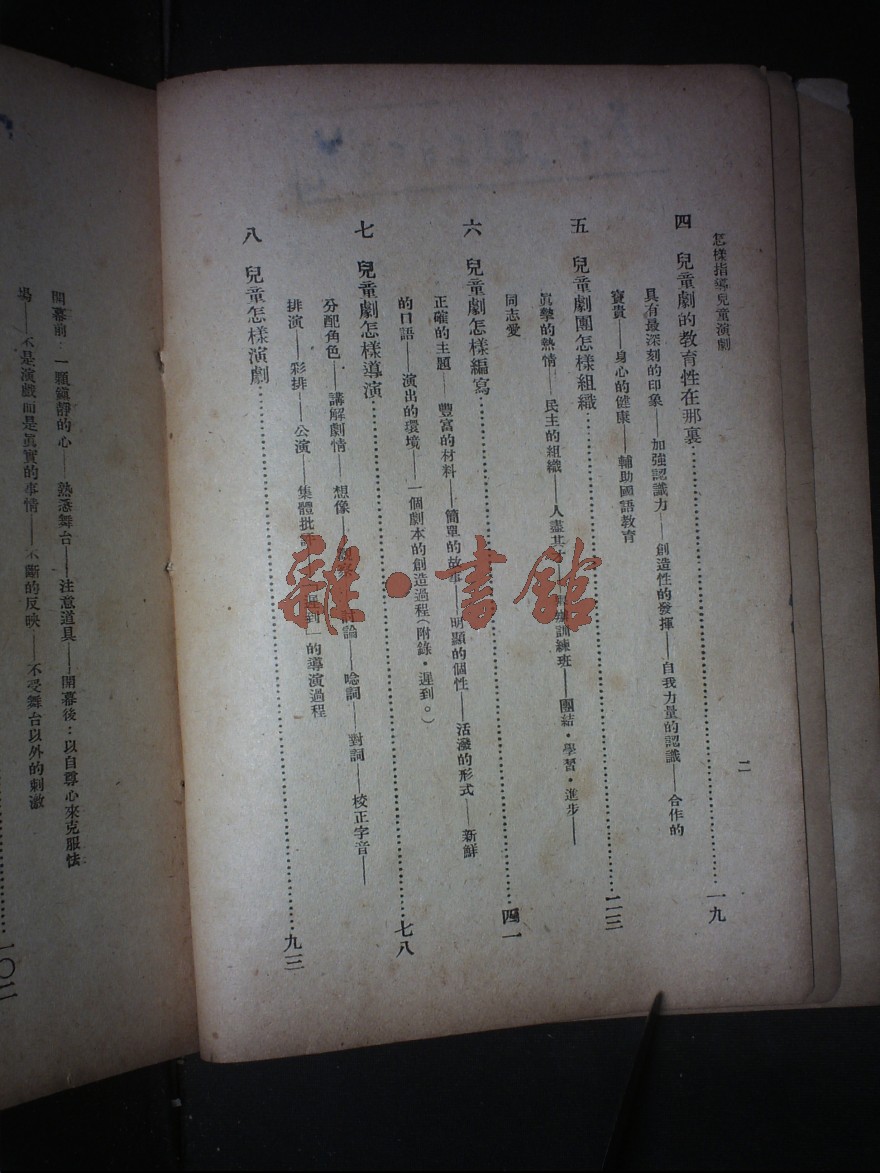 怎樣指導兒童演劇
二
四 兒童劇的教育性在那裏……一九
具有最深刻的印象——加強認識力——創造性的發揮——自我力量的認識——合作的
寶貴——身心的健康——輔助國語教育
五 兒童劇團怎樣組織……二三
眞摯的熱情——民主的組織——人盡其才——訓練班——團結・學習・進步——
同志愛
六 兒童劇怎樣編寫……四一
正確的主題——豐富的材料——簡單的故事——明顯的個性——活潑的形式——新鮮
的口語——演出的環境——一個劇本的創造過程(附錄・遲到。)
七 兒童劇怎樣導演……七八
分配角色——講解劇情——想像——討論——唸詞——對詞——校正字音——
排演——彩排——公演——集體批評——遲到——的導演過程
八 兒童怎樣演劇……九三
開幕前:一顆鎭靜的心——熟悉舞台——注意道具——開幕後:以自尊心來克服怯
場——不是演戲而是眞實的事情——不斷的反映——不受舞台以外的刺激
……一〇二
雜・書館